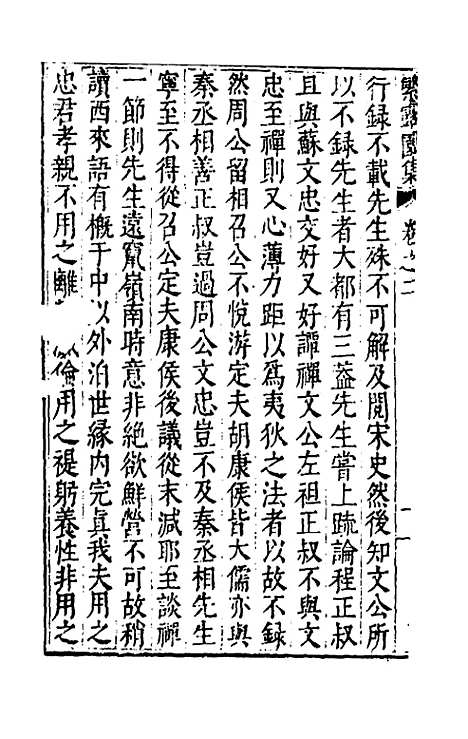 繁露園集 卷之二
行錄不載先生殊不可解及閱宋史然後知文公所
以不錄先生者大都有三葢先生嘗上疏論程正叔
且與蘇文忠交好又好譚禪文公左袒正叔不與文
忠至禪則又心薄力距以爲夷狄之法者以故不錄
然周公留相召公不悅游定夫胡康侯皆大儒亦與
秦丞相善正叔豈過周公文忠豈不及秦丞相先生
寧至不得從召公定夫康侯後議從末減耶至談禪
一節則先生遠竄嶺南時意非絕欲鮮營不可故稍
讀西來語有概于中以外泊世緣內完眞我夫用之
忠君孝親不用之離 倫用之禔躬養性非用之